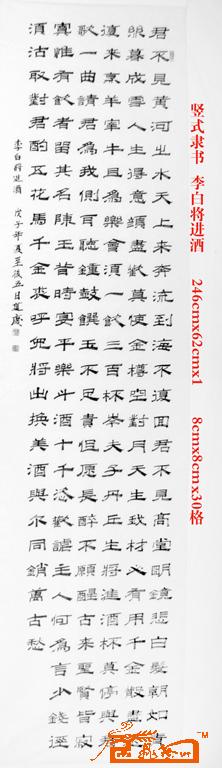 竖式隶书 李白将进酒 246cmx62cmx1 8cmx8cmx30格
君不見黃河之水天上來奔流到海不復回君不見高堂明鏡悲白髮朝如青
絲暮成雪人生得意須盡歡莫使金樽空對月天生我材必有用千金散盡還
復來烹羊宰牛且為樂會須一飲三百杯岑夫子丹丘生將進酒杯莫停與君
歌一曲請君為我側耳聽鐘鼓饌玉不足貴但願長醉不願醒古來聖賢皆寂
寞惟有飲者留其名陳王昔時宴平樂斗酒十千恣歡謔主人何為言少錢徑
須沽取對君酌五花馬千金裘呼兒將出換美酒與爾同銷萬古愁
李白將進酒 戊子年夏至後五日